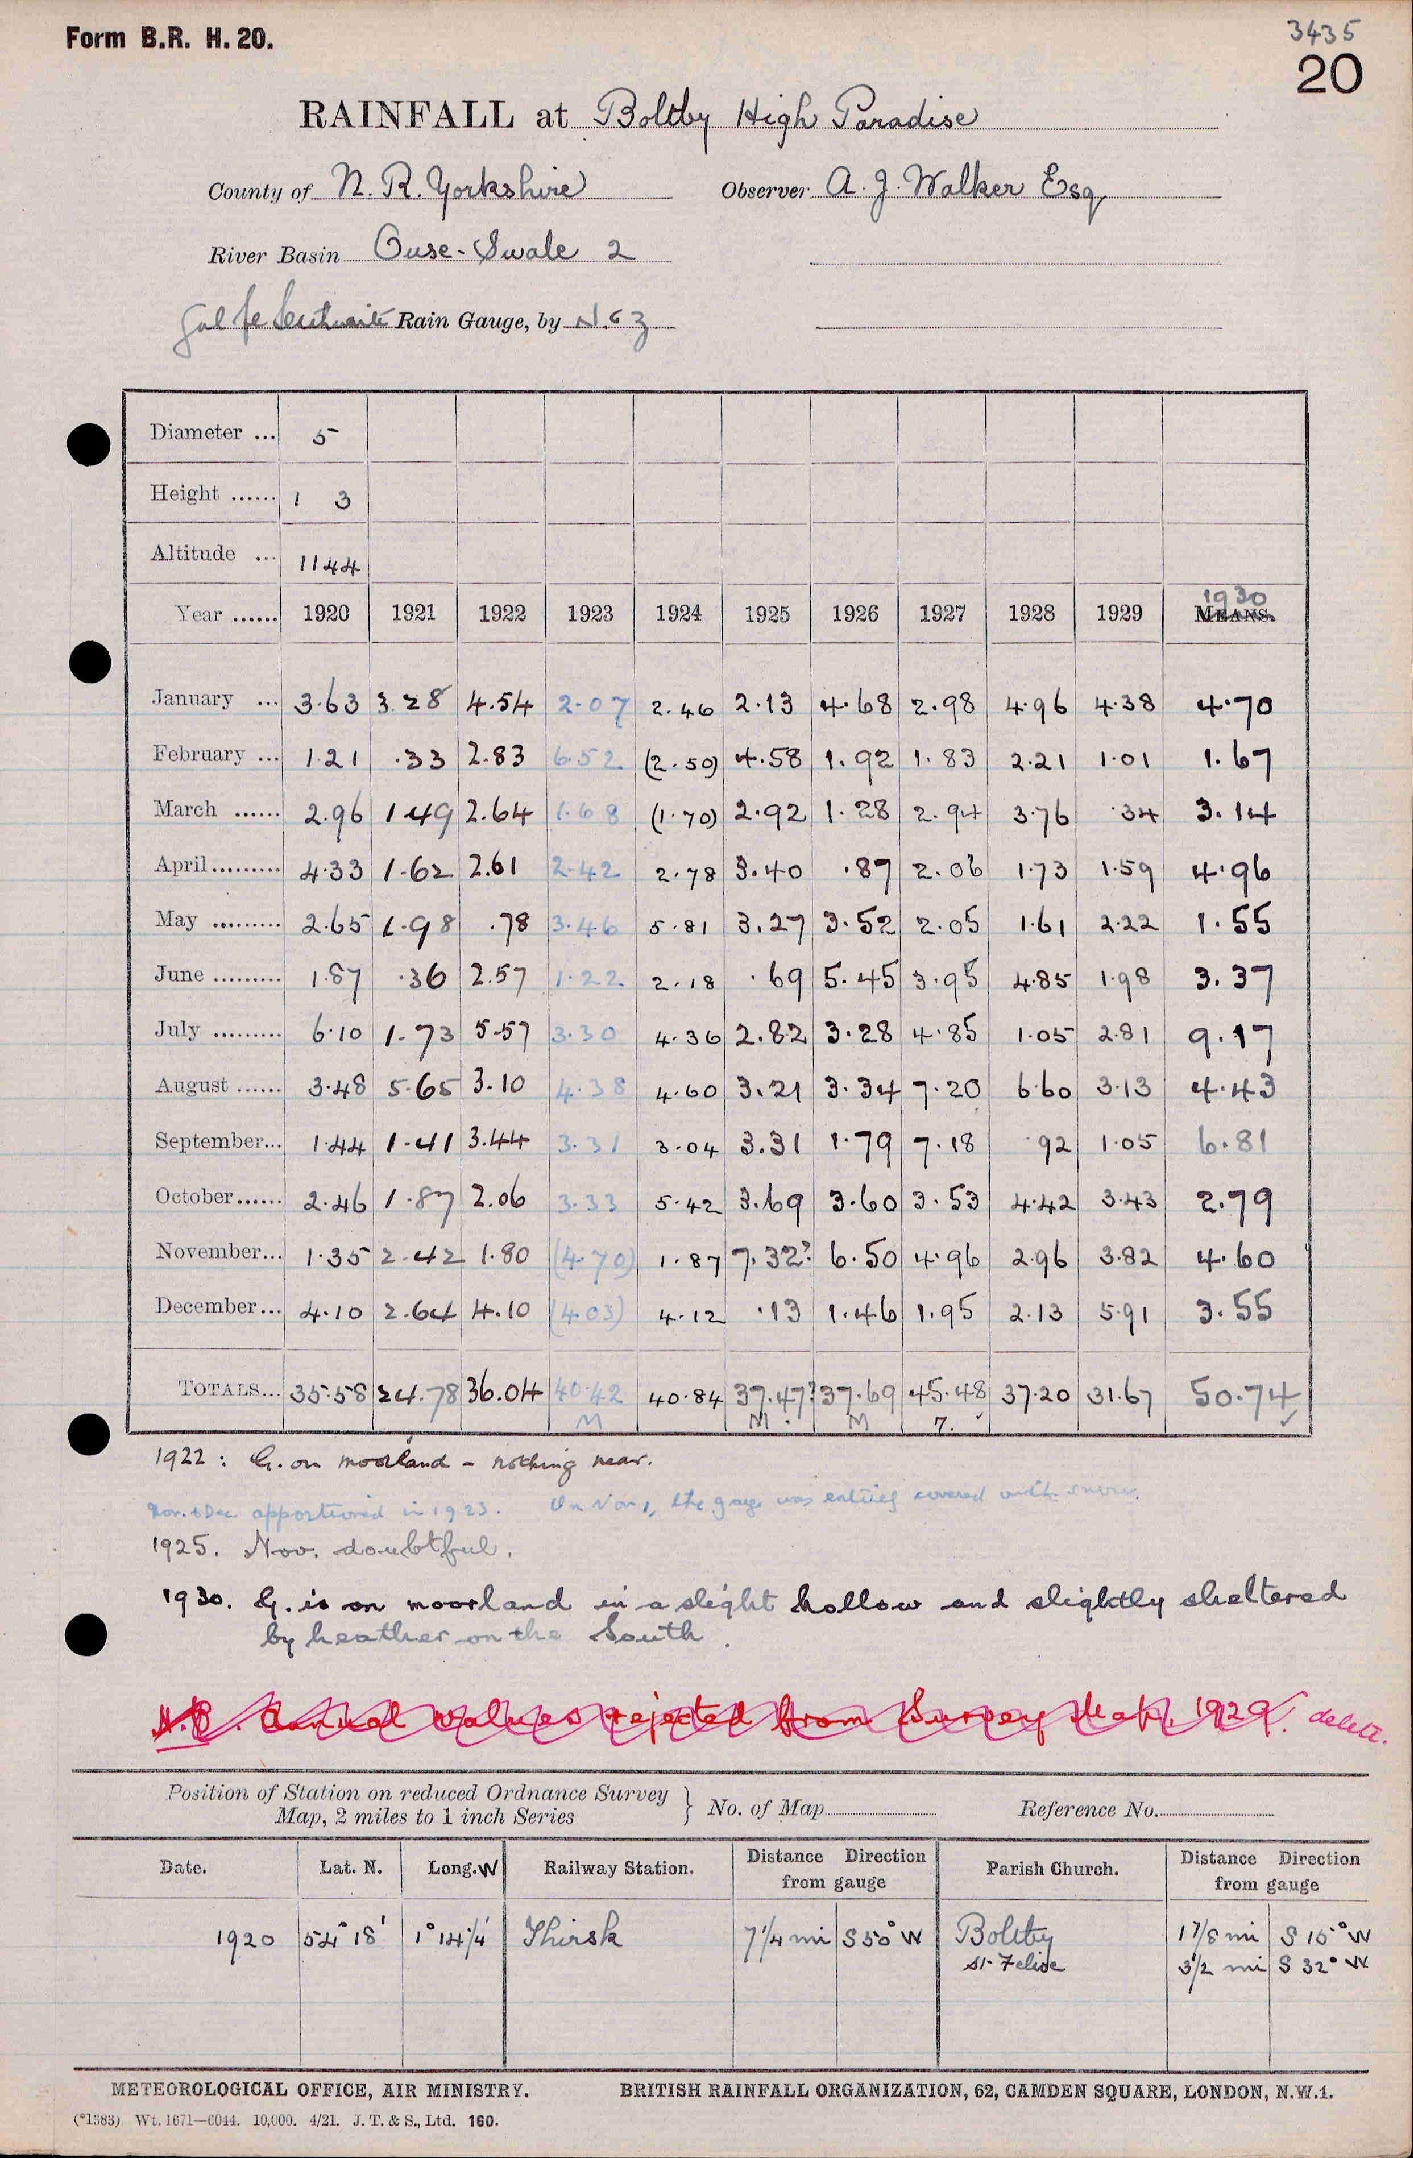 Form B.R. H. 20.
3435
20
RAINFALL at Boltby High Paradise
County of N. R. Yorkshire Observer A. J. Walker Esq
River Basin Ouse-Swale 2
Rain Gauge, by N & Z
Diameter ... 5
Height ...... 1 3
Altitude ... 1144
1930
Year ...... 1920 1921 1922 1923 1924 1925 1926 1927 1928 1929 MEANS.
January ... 3.63 3.28 4.54 2.07 2.46 2.13 4.68 2.98 4.96 4.38 4.70
February ... 1.21 .33 2.83 6.52 (2.50) 4.58 1.92 1.83 2.21 1.01 1.67
March ...... 2.96 1.49 2.64 1.68 (1.70) 2.92 1.28 2.94 3.76 .34 3.14
April ......... 4.33 1.62 2.61 2.42 2.78 3.40 .87 2.06 1.73 1.59 4.96
May ......... 2.65 1.98 .78 3.46 5.81 3.27 3.52 2.05 1.61 2.22 1.55
June ......... 1.87 .36 2.57 1.22 2.18 .69 5.45 3.95 4.85 1.98 3.37
July ......... 6.10 1.73 5.57 3.30 4.36 2.82 3.28 4.85 1.05 2.81 9.17
August ...... 3.48 5.65 3.10 4.38 4.60 3.21 3.34 7.20 6.60 3.13 4.43
September... 1.44 1.41 3.44 3.31 3.04 3.31 1.79 7.18 .92 1.05 6.81
October...... 2.46 1.87 2.06 3.33 5.42 3.69 3.60 3.53 4.42 3.43 2.79
November... 1.35 2.42 1.80 (4.70) 1.87 7.32? 6.50 4.96 2.96 3.82 4.60
December... 4.10 2.64 4.10 (4.03) 4.12 .13 1.46 1.95 2.13 5.91 3.55
TOTALS... 35.58 24.78 36.04 40.42 40.84 37.47? 37.69 45.48 37.20 31.67 50.74 ✓
M M M 7.
1922 : G. on moorland - nothing near.
Nov. & Dec apportioned in 1923. On Nov 1, the gauge was entirely covered with snow.
1925. Nov. doubtful.
1930. G. is on moorland in a slight hollow and slightly sheltered
by heather on the South.
N.B. Annual values rejected from Survey Map, 1929. delete.
Position of Station on reduced Ordnance Survey
Map, 2 miles to 1 inch Series } No. of Map Reference No.
Date. Lat. N. Long. W Railway Station. Distance Direction from gauge Parish Church. Distance Direction from gauge
1920 54° 18' 1° 14¼' Thirsk 7¼ mi S 50° W Boltby 1⅞ mi S 15° W
St. Felix 3½ mi S 32° W
METEOROLOGICAL OFFICE, AIR MINISTRY. BRITISH RAINFALL ORGANIZATION, 62, CAMDEN SQUARE, LONDON, N.W.1.
(*1383) Wt. 1671—6044. 10,000. 4/21. J. T. & S., Ltd. 160.